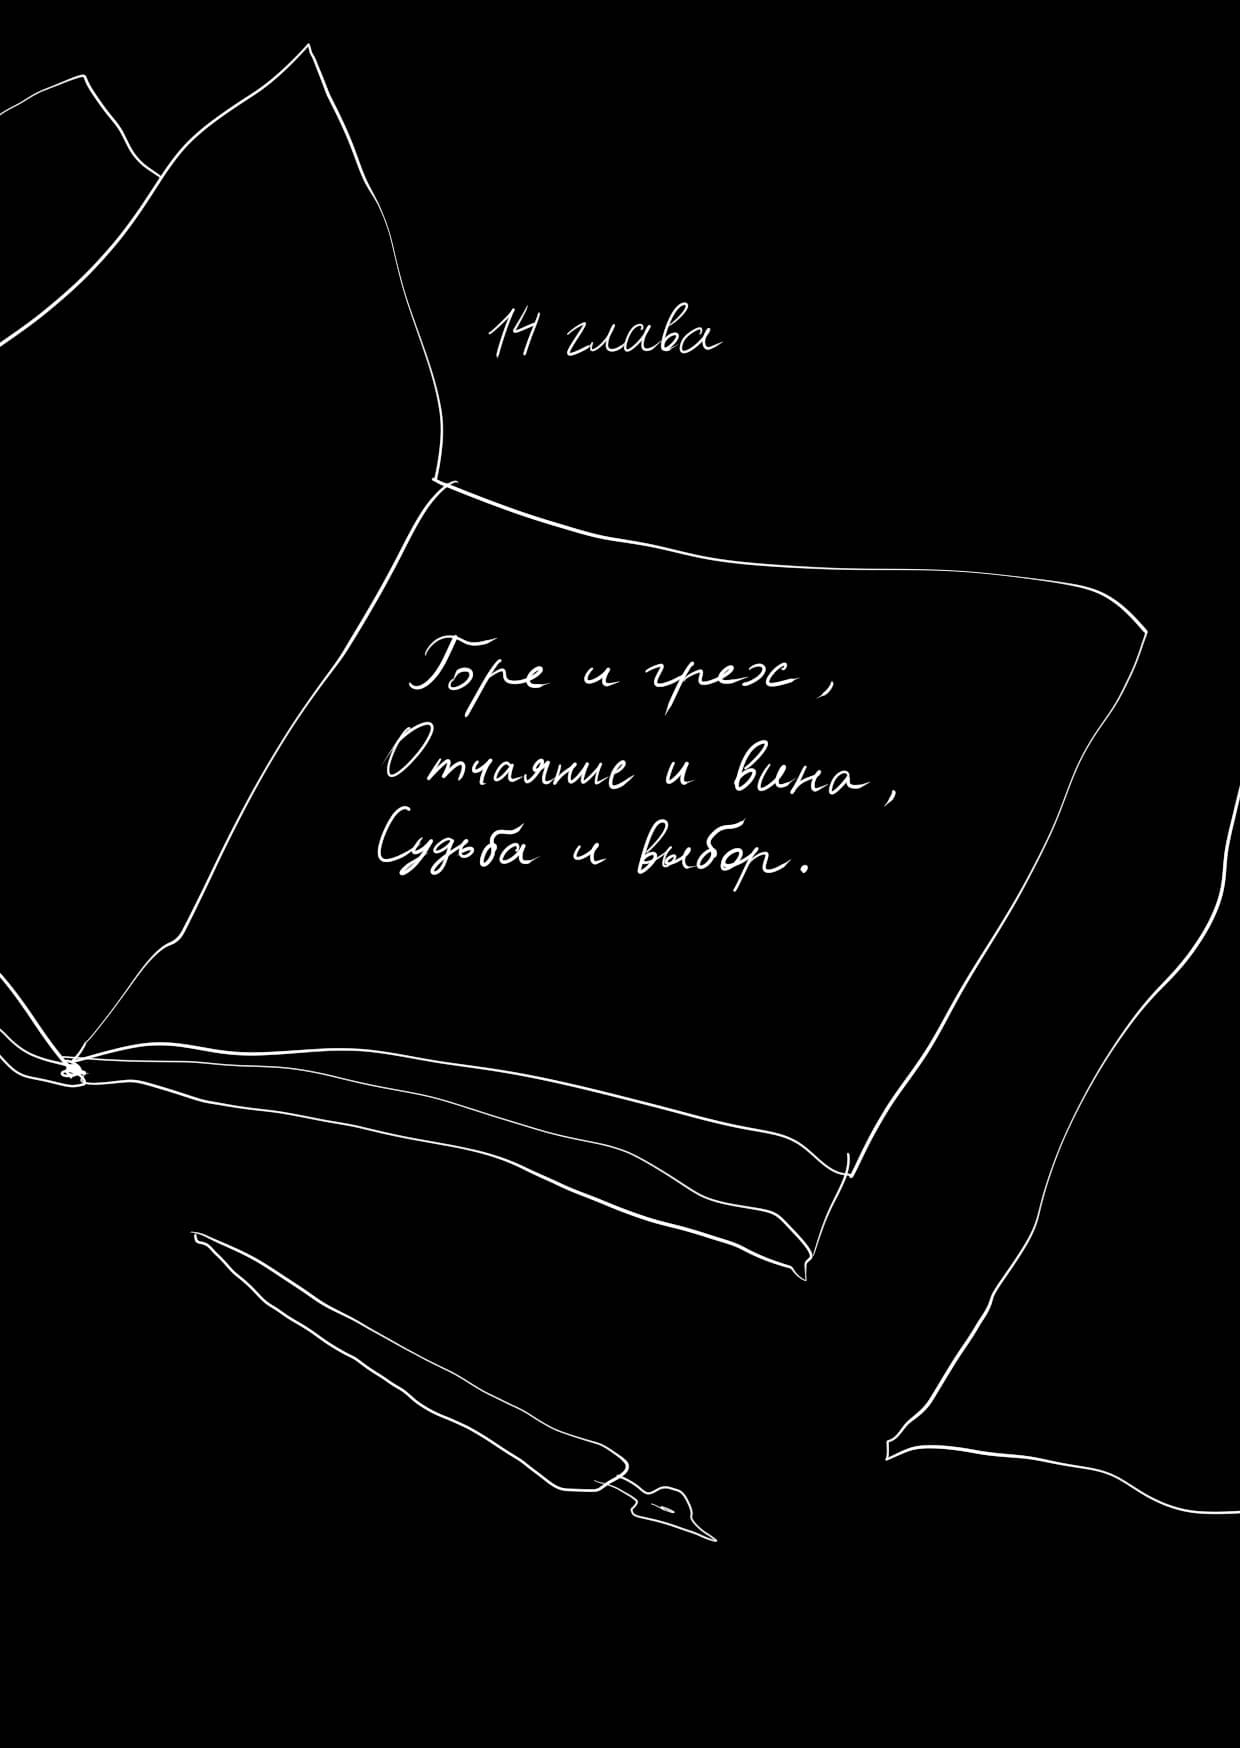 14 глава
Горе и грех,
Отчаяние и вина,
Судьба и выбор.